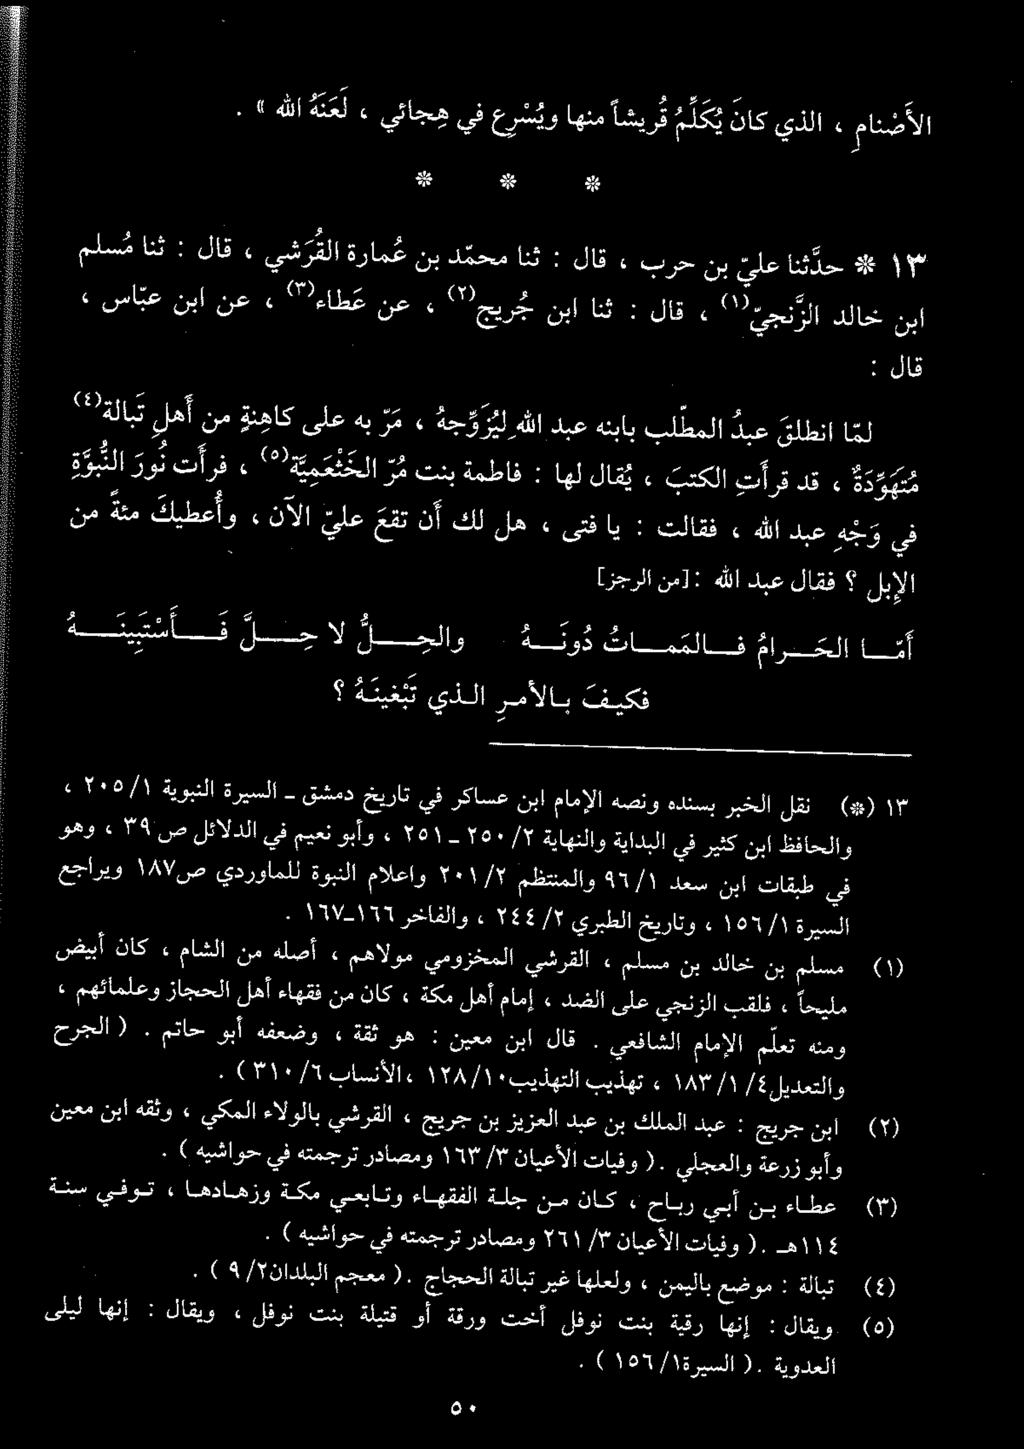 الأَصْنامِ ، الذي كانَ يُكَلِّمُ قُريشاً منها ويُسْرِع في هِجائي ، لَعَنَهُ الله » .
* * *
١٣ * حدَّثنا عليّ بن حرب ، قال : ثنا محمّد بن عُمارة القُرَشي ، قال : ثنا مُسلم
ابن خالد الزَّنجيّ(١) ، قال : ثنا ابن جُريج(٢) ، عن عَطاء(٣) ، عن ابن عبّاس ،
قال :
لمّا انطلقَ عبدُ المطّلب بابنه عبد الله لِيُزَوِّجهُ ، مَرّ به على كاهِنةٍ من أَهلِ تَبالة(٤)
مُتهَوِّدَةٌ ، قد قرأَتِ الكتبَ ، يُقالُ لها : فاطمة بنت مُرّ الخَثْعَمِيَّة(٥) ، فرأَت نُورَ النُّبوَّةِ
في وَجْهِ عبد الله ، فقالت : يا فتى ، هل لك أَن تقعَ عليّ الآن ، وأُعطيكَ مئةً من
الإبلِ ؟ فقال عبد الله : [من الرجز]
أَمّا الحَرامُ فالمَماتُ دُونَهُ والحِلُّ لا حِلَّ فَأَسْتَبِينَهُ
فكيفَ بالأمرِ الذي تَبْغينَهُ ؟
١٣ (*) نقل الخبر بسنده ونصه الإمام ابن عساكر في تاريخ دمشق ـ السيرة النبوية ٢٠٥/١ ،
والحافظ ابن كثير في البداية والنهاية ٢٥٠/٢ ـ ٢٥١ ، وأبو نعيم في الدلائل ص ٣٩ ، وهو
في طبقات ابن سعد ٩٦/١ والمنتظم ٢٠١/٢ واعلام النبوة للماوردي ص١٨٧ ويراجع
السيرة ١٥٦/١ ، وتاريخ الطبري ٢٤٤/٢ ، والفاخر ١٦٦-١٦٧ .
(١) مسلم بن خالد بن مسلم ، القرشي المخزومي مولاهم ، أصله من الشام ، كان أبيض
مليحاً ، فلقب الزنجي على الضد ، إمام أهل مكة ، كان من فقهاء أهل الحجاز وعلمائهم ،
ومنه تعلّم الإمام الشافعي . قال ابن معين : هو ثقة ، وضعفه أبو حاتم . ( الجرح
والتعديل٤/ ١٨٣/١ ، تهذيب التهذيب١٢٨/١٠ ، الأنساب٣١٠/٦ ) .
(٢) ابن جريج : عبد الملك بن عبد العزيز بن جريج ، القرشي بالولاء المكي ، وثقه ابن معين
وأبو زرعة والعجلي . ( وفيات الأعيان ١٦٣/٣ ومصادر ترجمته في حواشيه ) .
(٣) عطاء بن أبي رباح ، كان من جلة الفقهاء وتابعي مكة وزهادها ، توفي سنة
١١٤هـ . ( وفيات الأعيان ٢٦١/٣ ومصادر ترجمته في حواشيه ) .
(٤) تبالة : موضع باليمن ، ولعلها غير تبالة الحجاج . ( معجم البلدان٩/٢ ) .
(٥) ويقال : إنها رقية بنت نوفل أخت ورقة أو قتيلة بنت نوفل ، ويقال : إنها ليلى
العدوية . ( السيرة١٥٦/١ ) .
٥٠